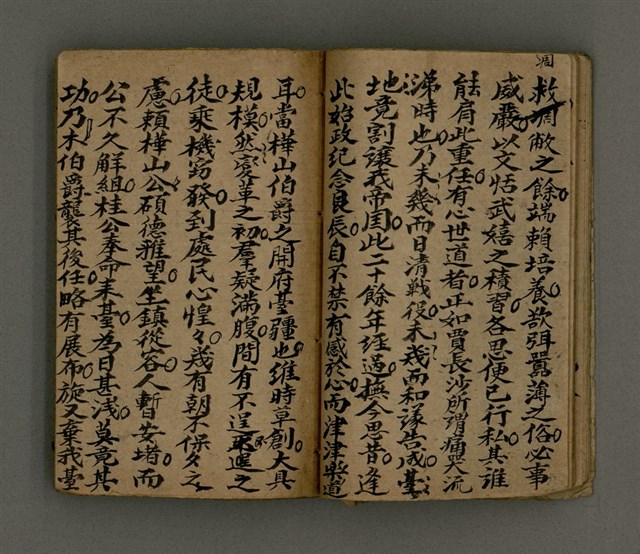 凋
救凋敝之餘端賴培養欲弭囂薄之俗必事
威嚴以文恬武嬉之積習各思便已行私其誰
能肩此重任有心世道者正如賈長沙所謂痛哭流
涕時也乃未幾而日清戰役未幾而和議告成臺
地竟割讓我帝国此二十餘年經過撫今思昔逢
此始政紀念良辰自不禁有感於心而津津樂道
耳當樺山伯爵之開府臺疆也維時草創大具
規模然變革之初羣疑滿腹間有不逞之
徒乘機窃發到處民心惶々幾有朝不保夕之
慮賴樺山公碩德雅望坐鎮從容人暫安堵而
公不久解組桂公奉命来臺為日甚浅莫竟其
功乃木伯爵襲其後任略有展布旋又棄我臺